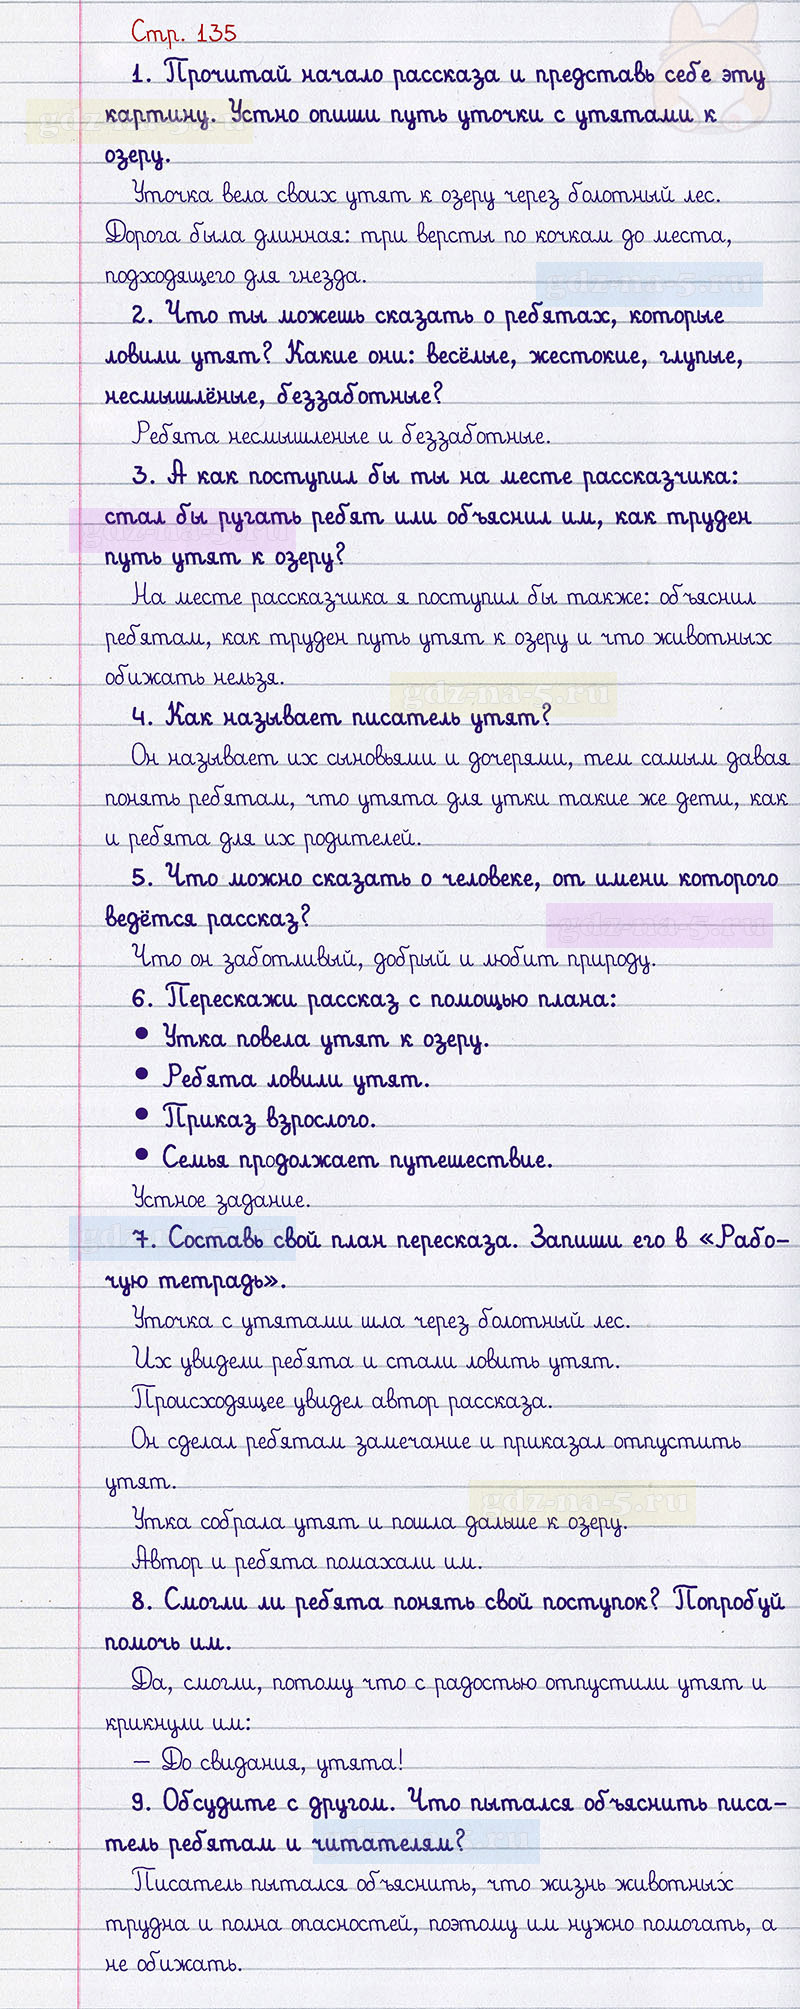 Стр. 135
1. Прочитай начало рассказа и представь себе эту
картину. Устно опиши путь уточки с утятами к
озеру.
Уточка вела своих утят к озеру через болотный лес.
Дорога была длинная: три версты по кочкам до места,
подходящего для гнезда.
gdz-na-5.ru
gdz-na-5.ru
2. Что ты можешь сказать о ребятах, которые
ловили утят? Какие они: весёлые, жестокие, глупые,
несмышлёные, беззаботные?
Ребята несмышленые и беззаботные.
3. А как поступил бы ты на месте рассказчика:
стал бы ругать ребят или объяснил им, как труден
gdz-na-5.ru
путь утят к озеру?
На месте рассказчика я поступил бы также: объяснил
ребятам, как труден путь утят к озеру и что животных
обижать нельзя.
gdz-na-5.ru
4. Как называет писатель утят?
Он называет их сыновьями и дочерями, тем самым давая
понять ребятам, что утята для утки такие же дети, как
и ребята для их родителей.
5. Что можно сказать о человеке, от имени которого
ведётся рассказ?
gdz-na-5.ru
Что он заботливый, добрый и любит природу.
6. Перескажи рассказ с помощью плана:
• Утка повела утят к озеру.
• Ребята ловили утят.
• Приказ взрослого.
• Семья продолжает путешествие.
Устное задание.
gdz-na-5.ru
7. Составь свой план пересказа. Запиши его в «Рабо-
чую тетрадь».
Уточка с утятами шла через болотный лес.
Их увидели ребята и стали ловить утят.
Происходящее увидел автор рассказа.
Он сделал ребятам замечание и приказал отпустить
утят.
gdz-na-5.ru
Утка собрала утят и пошла дальше к озеру.
Автор и ребята помахали им.
8. Смогли ли ребята понять свой поступок? Попробуй
помочь им.
Да, смогли, потому что с радостью отпустили утят и
крикнули им:
– До свидания, утята!
9. Обсудите с другом. Что пытался объяснить писа-
тель ребятам и читателям?
gdz-na-5.ru
Писатель пытался объяснить, что жизнь животных
трудна и полна опасностей, поэтому им нужно помогать, а
не обижать.